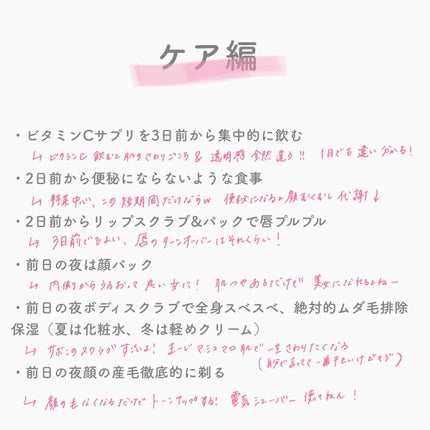 ケア編
・ビタミンCサプリを3日前から集中的に飲む
↳ ビタミンC 飲むと肌のさわりごこち & 透明感 全然違う!! 1日でも違い分かる!
・2日前から便秘にならないような食事
↳ 野菜中心、この短期間だけならw 便秘になると顔もくむし 代謝↓
・2日前からリップスクラブ&パックで唇プルプル
↳ 3日前でもよい、唇のターンオーバーはそれくらい!
・前日の夜は顔パック
↳ 内側からうるおって良い女に! 肌つやあるだけで 美女になれるよねー
・前日の夜ボディスクラブで全身スベスベ、絶対的ムダ毛排除
保湿（夏は化粧水、冬は軽めクリーム）
↳ サボンのスクラブすごいよ! まーじでマシュマロ肌で一生さわりたくなる
(自分で言ってて一番キモいけどマジ)
・前日の夜顔の産毛徹底的に剃る
↳ 顔の毛なくなるだけでトーンアップする! 電気シェーバー 使ってねん!